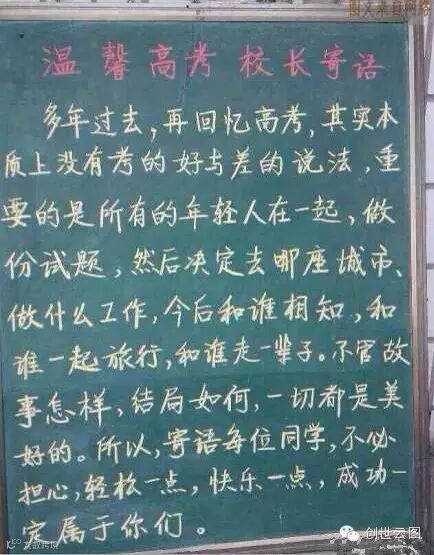 图文来自网络
温馨高考 校长寄语
多年过去，再回忆高考，其实本
质上没有考的好与差的说法，重
要的是所有的年轻人在一起，做
份试题，然后决定去哪座城市、
做什么工作，今后和谁相知，和
谁一起旅行，和谁走一辈子。不管故
事怎样，结局如何，一切都是美
好的。所以，寄语每位同学，不必
担心，轻松一点，快乐一点，成功一
定属于你们。
创世云图